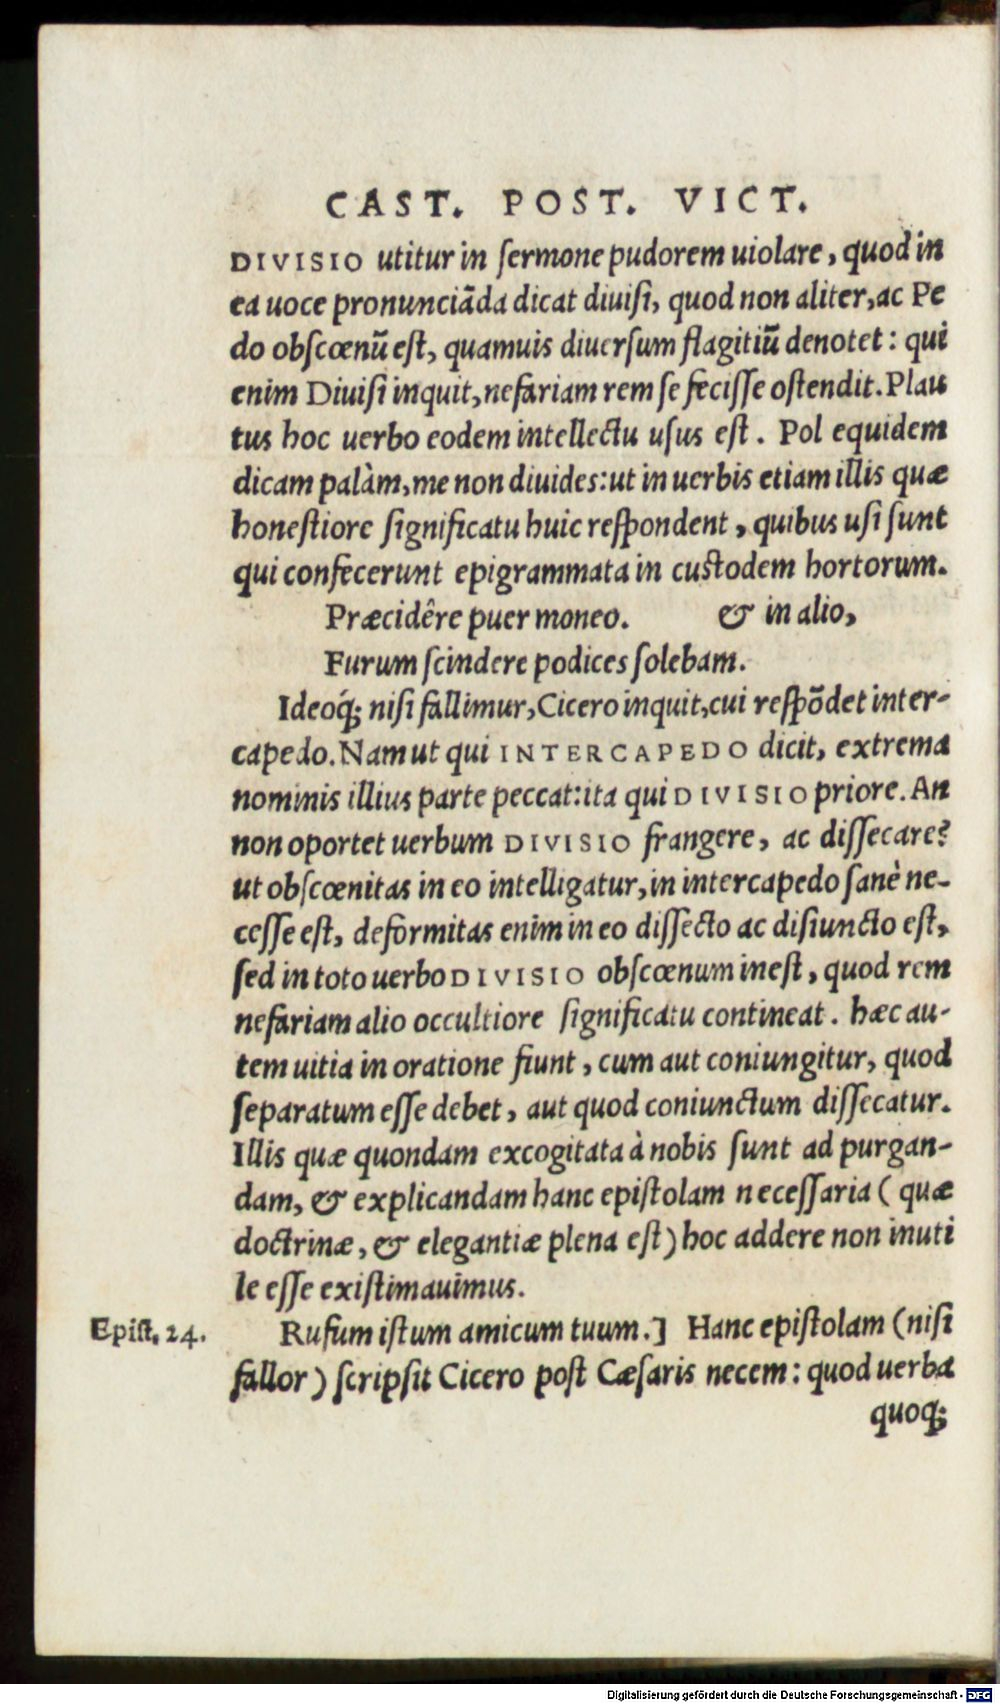 CAST. POST. VICT.
DIVISIO utitur in ſermone pudorem uiolare, quod in
ea uoce pronunciãda dicat diuiſi, quod non aliter, ac Pe
do obſcœnũ eſt, quamuis diuerſum flagitiũ denotet: qui
enim Diuiſi inquit, nefariam rem ſe feciſſe oſtendit. Plau
tus hoc uerbo eodem intellectu uſus eſt. Pol equidem
dicam palàm, me non diuides: ut in uerbis etiam illis quæ
honeſtiore ſignificatu huic reſpondent, quibus uſi ſunt
qui confecerunt epigrammata in cuſtodem hortorum.
Præcidêre puer moneo. & in alio,
Furum ſcindere podices ſolebam.
Ideoq́; niſi fallimur, Cicero inquit, cui reſpõdet inter-
capedo. Nam ut qui INTERCAPEDO dicit, extrema
nominis illius parte peccat: ita qui DIVISIO priore. An
non oportet uerbum DIVISIO frangere, ac diſſecare?
ut obſcœnitas in eo intelligatur, in intercapedo ſanè ne-
ceſſe eſt, deformitas enim in eo diſſecto ac diſiuncto eſt,
ſed in toto uerbo DIVISIO obſcœnum ineſt, quod rem
nefariam alio occultiore ſignificatu contineat. hæc au-
tem uitia in oratione fiunt, cum aut coniungitur, quod
ſeparatum eſſe debet, aut quod coniunctum diſſecatur.
Illis quæ quondam excogitata à nobis ſunt ad purgan-
dam, & explicandam hanc epiſtolam neceſſaria (quæ
doctrinæ, & elegantiæ plena eſt) hoc addere non inuti
le eſſe exiſtimauimus.
Epiſt. 24. Rufum iſtum amicum tuum.] Hanc epiſtolam (niſi
fallor) ſcripſit Cicero poſt Cæſaris necem: quod uerba
quoq;
Digitalisierung gefördert durch die Deutsche Forschungsgemeinschaft - DFG